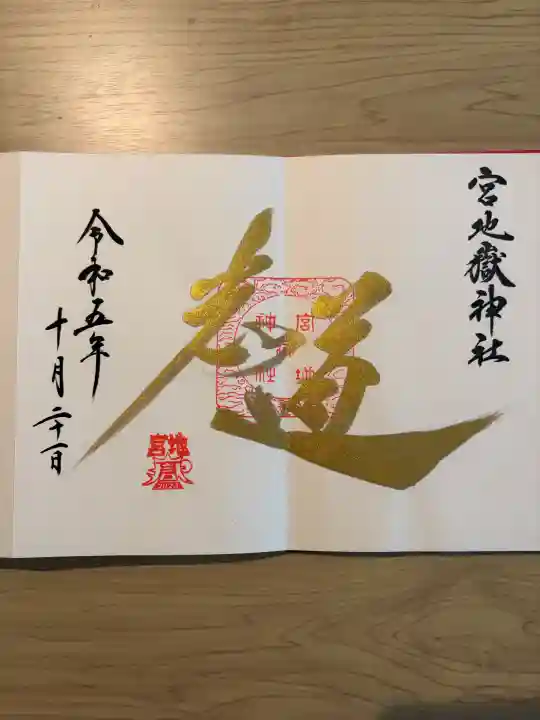 宮地嶽神社
光の道
宮地嶽神社
令和五年
十月二十一日